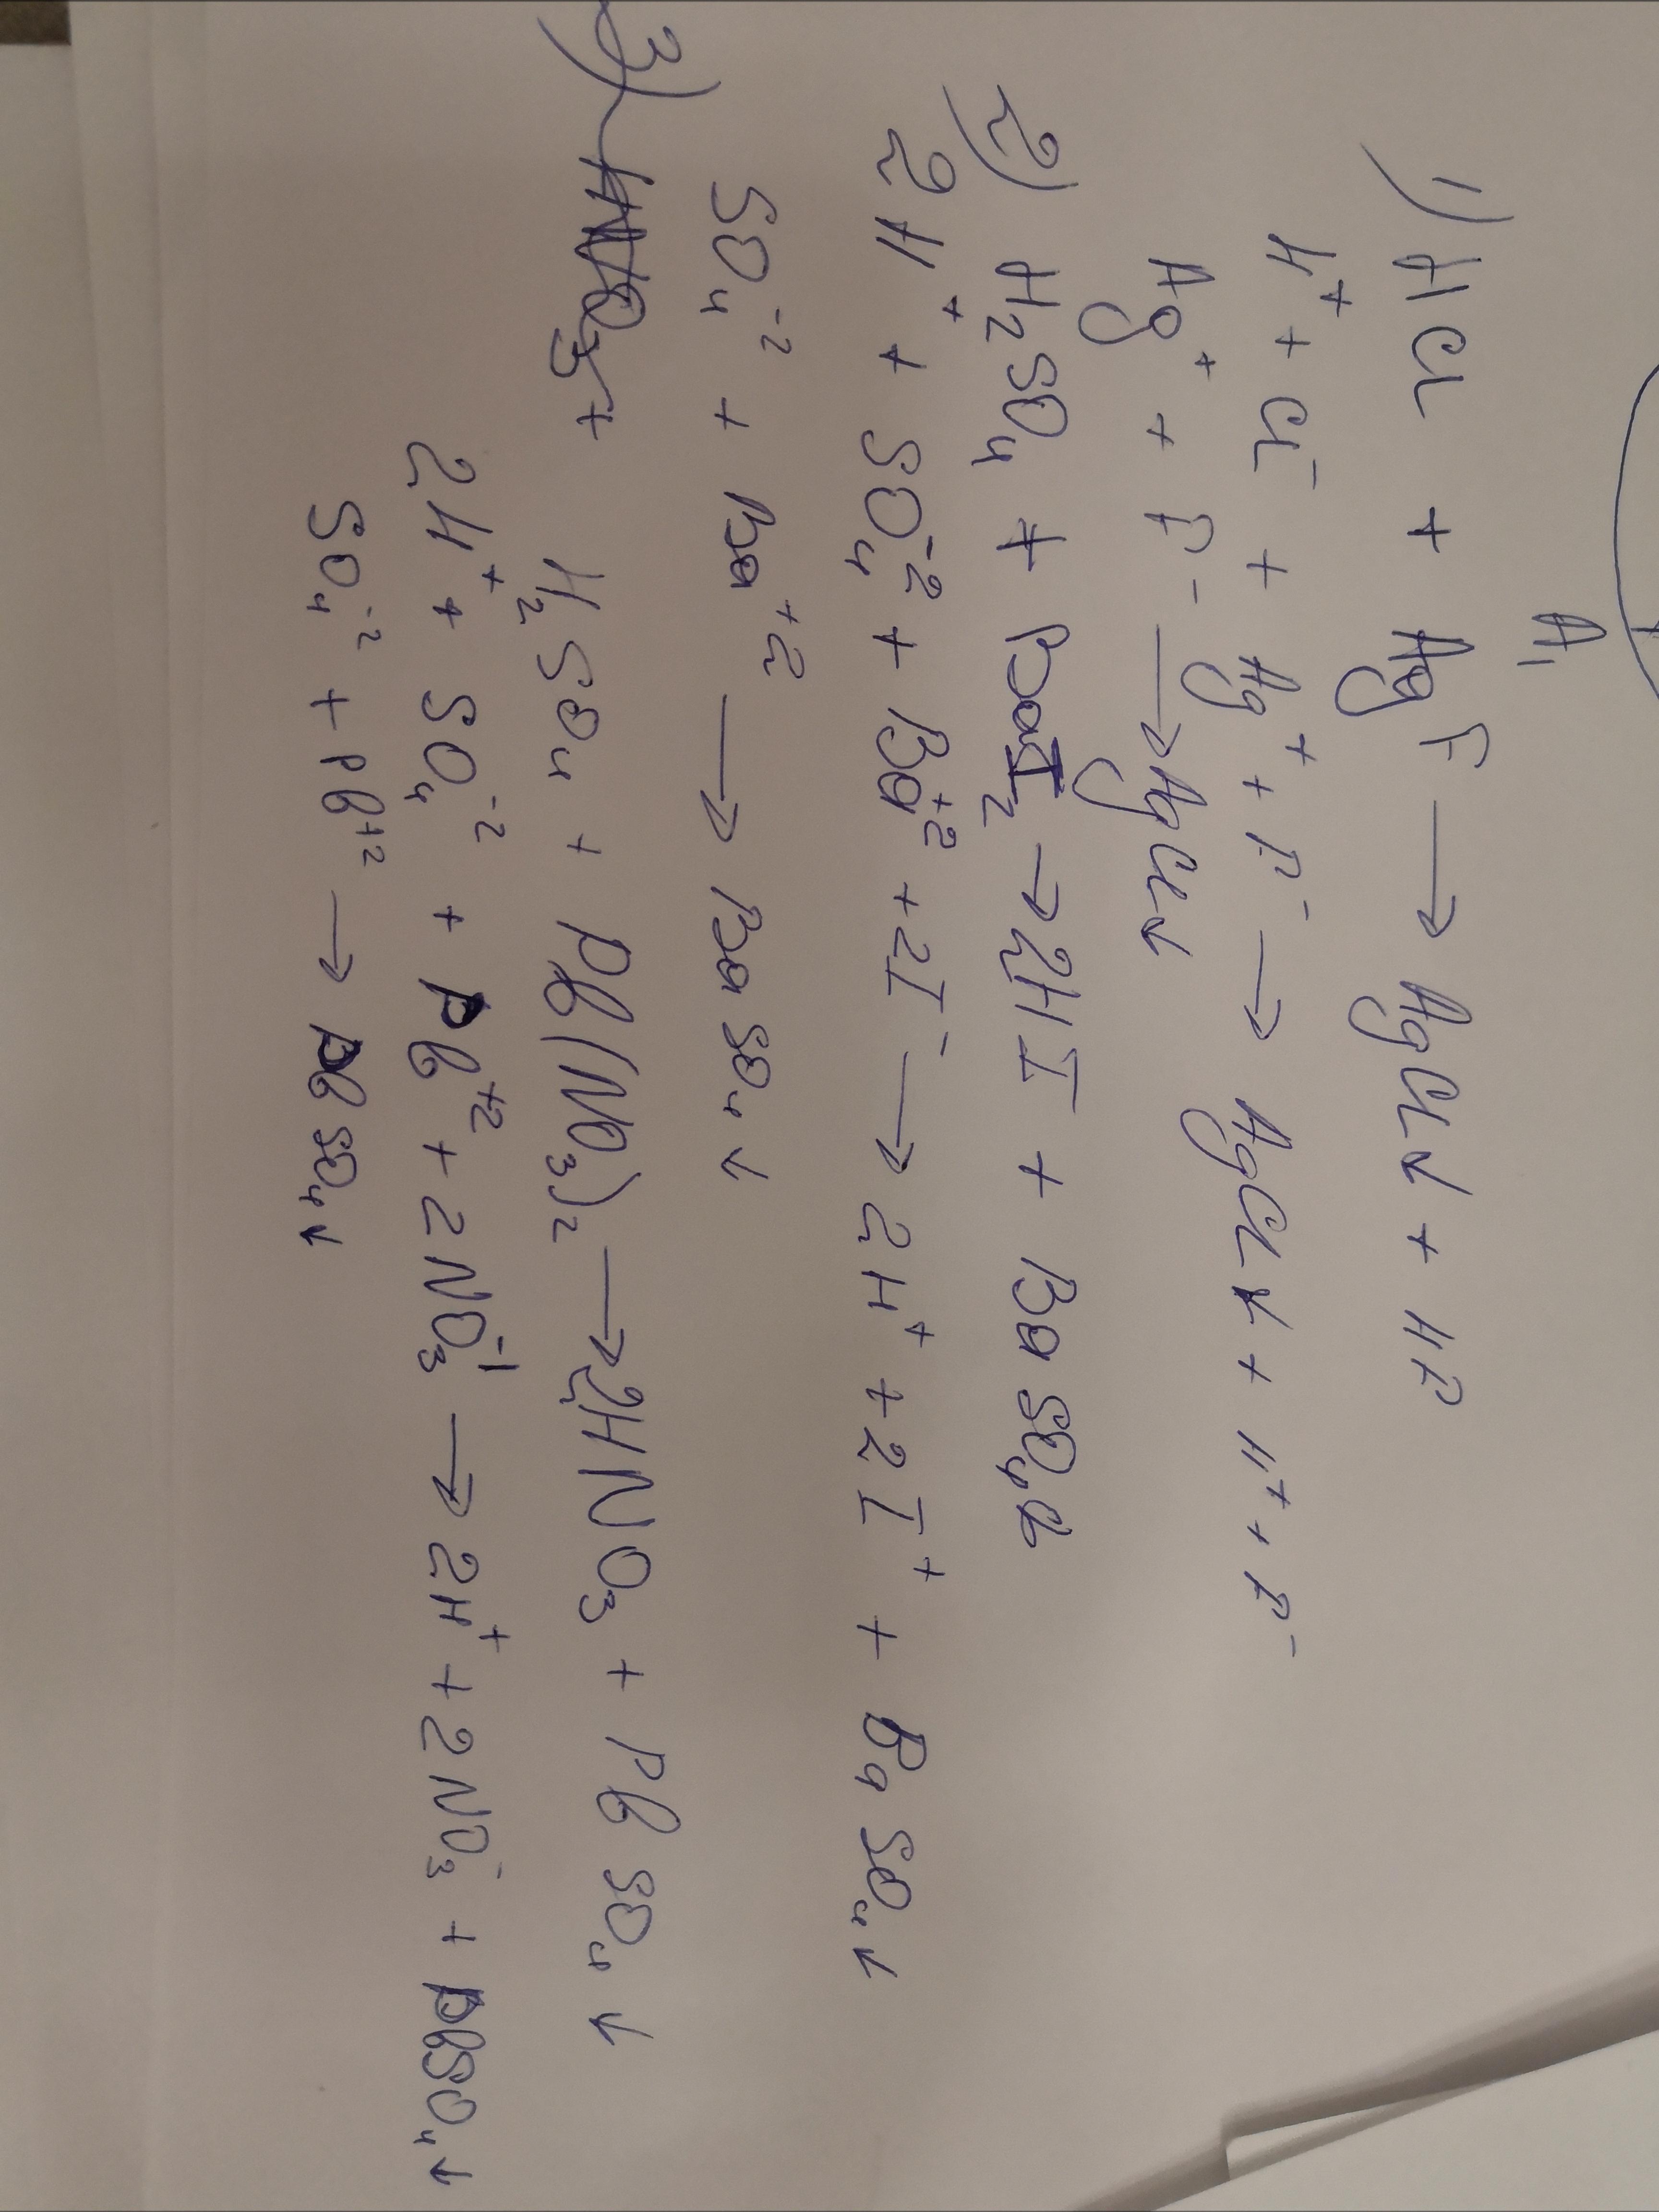 A₁
1) HCl + AgF → AgCl↓ + HF
H⁺ + Cl⁻ + Ag⁺ + F⁻ → AgCl↓ + H⁺ + F⁻
Ag⁺ + F⁻ → AgCl↓
2) H₂SO₄ + BaI₂ → 2HI + BaSO₄↓
2H⁺ + SO₄⁻² + Ba⁺² + 2I⁻ → 2H⁺ + 2I⁺ + BaSO₄↓
SO₄⁻² + Ba⁺² → BaSO₄↓
3) HNO₃ +
H₂SO₄ + Pb(NO₃)₂ → 2HNO₃ + PbSO₄↓
2H⁺ + SO₄⁻² + Pb⁺² + 2NO₃⁻¹ → 2H⁺ + 2NO₃⁻ + PbSO₄↓
SO₄⁻² + Pb⁺² → PbSO₄↓